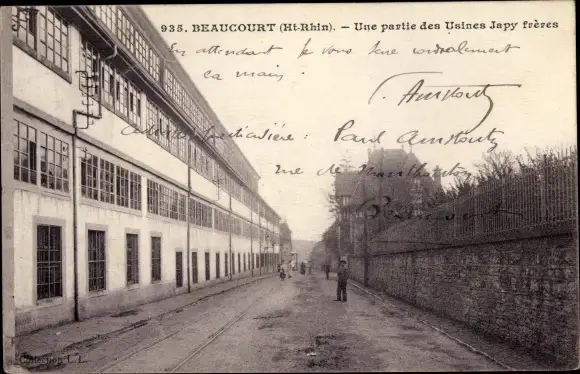 935. BEAUCOURT (Ht-Rhin). - Une partie des Usines Japy frères
En attendant je vous serre cordialement
la main.
Adresse particulière : Paul
rue de
Beaucourt
Collection L. L.